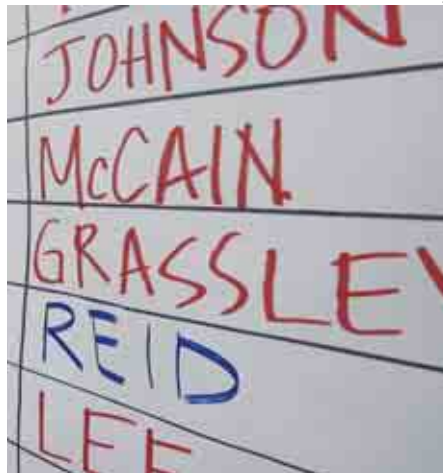 JOHNSON
McCAIN
GRASSLEY
REID
LEE